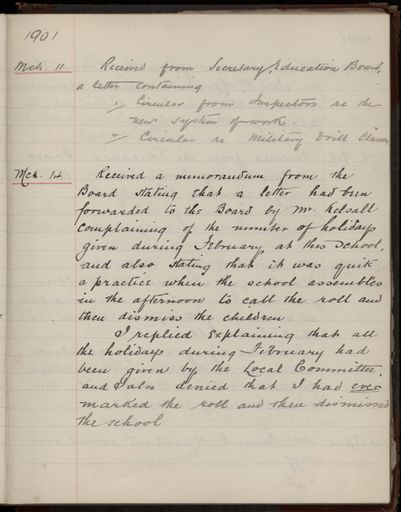 1901
Mch. 11 Received from Secretary, Education Board,
a letter containing
1/ Circular from Inspectors re the
new system of work.
2/ Circular re Military Drill Classes
Mch. 14 Received a memorandum from the
Board stating that a letter had been
forwarded to the Board by Mr. Kelsall
complaining of the number of holidays
given during February, at this School,
and also stating that it was quite
a practice when the school assembles
in the afternoon to call the roll and
then dismiss the children
I replied explaining that all
the holidays during February had
been given by the Local Committee,
and I also denied that I had ever
marked the roll and then dismissed
the school